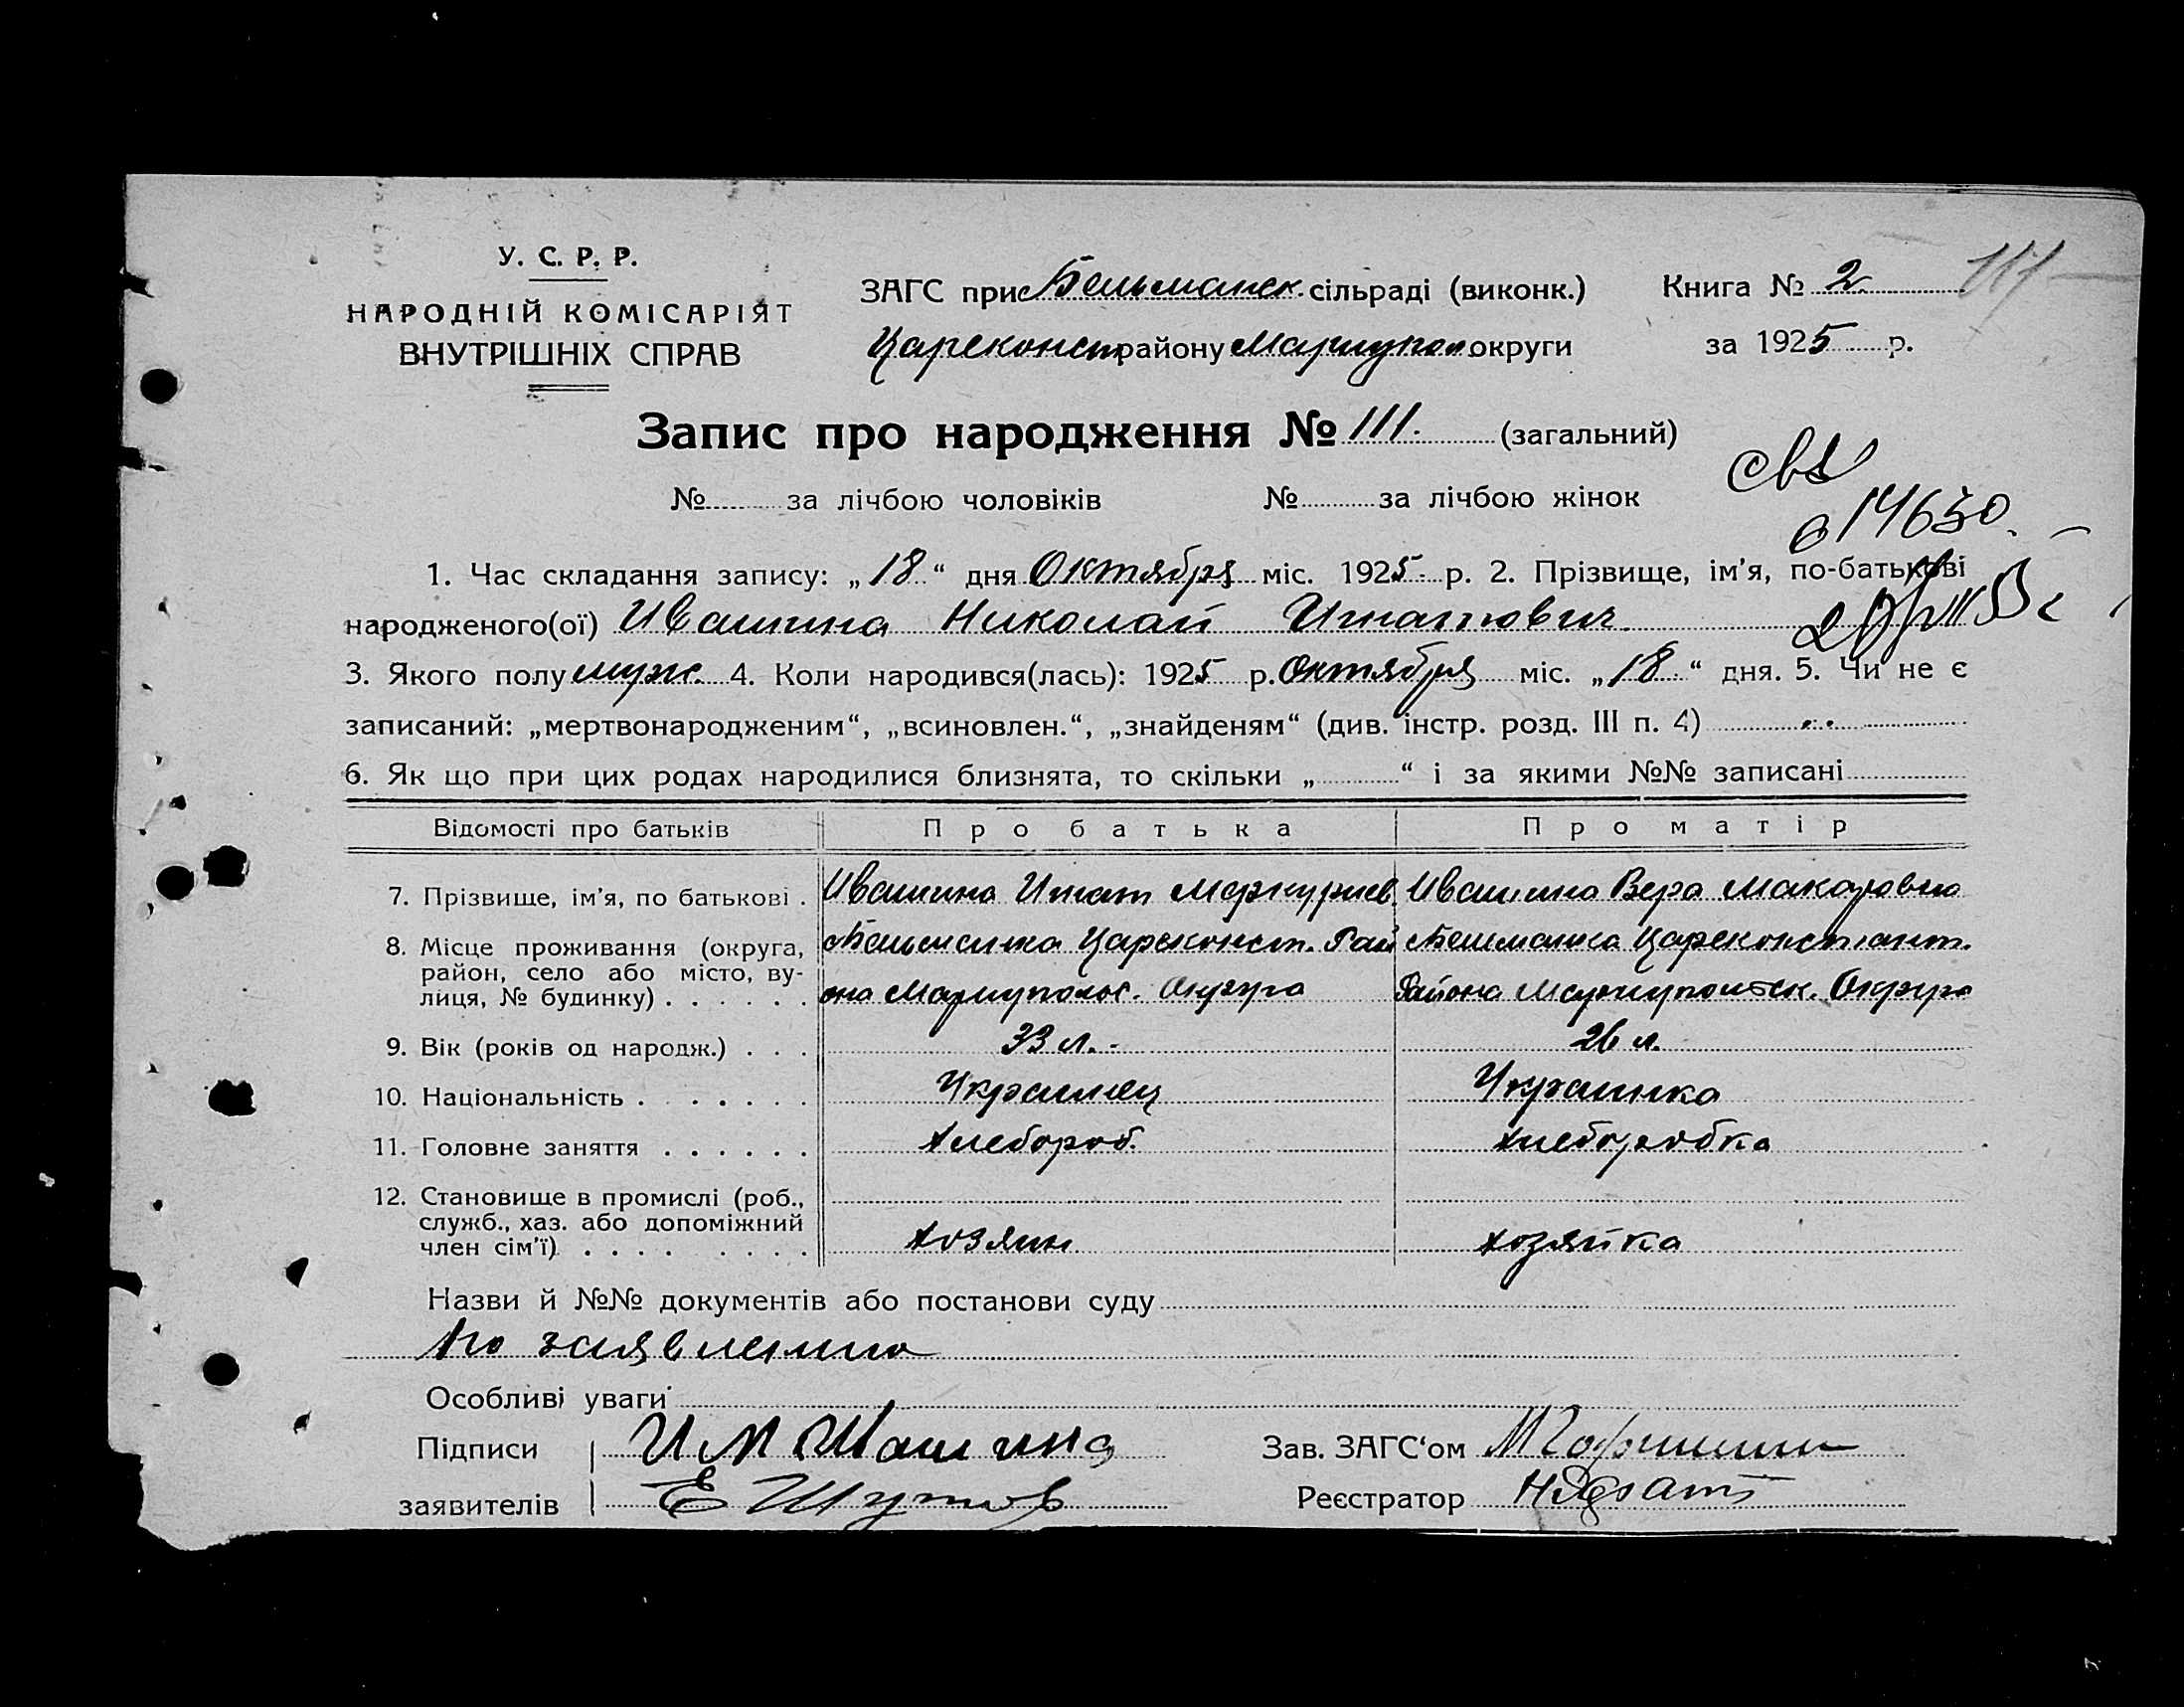 У. С. Р. Р.
НАРОДНІЙ КОМІСАРІЯТ
ВНУТРІШНІХ СПРАВ
ЗАГС при с Бельманск. сільраді (виконк.)
Книга № 2
111
Царсконст. району Мариупол. округи
за 1925 р.
Запис про народження № 111. (загальний)
№ за лічбою чоловіків № за лічбою жінок
свд
о 14630.
1. Час складання запису: „18“ дня Октября міс. 1925 р. 2. Прізвище, ім’я, по-батькові
народженого(ої) Ивашина Николай Игнатович
3. Якого полу муж. 4. Коли народився(лась): 1925 р. Октября міс. „18“ дня. 5. Чи не є
записаний: „мертвонародженим“, „всиновлен.“, „знайденям“ (див. інстр. розд. III п. 4)
6. Як що при цих родах народилися близнята, то скільки „ “ і за якими №№ записані
Відомості про батьків Про батька Про матір
7. Прізвище, ім’я, по батькові . Ивашина Игнат Меркуриев. Ивашина Вера Макаровна
8. Місце проживання (округа, район, село або місто, вулиця, № будинку) . . . . . .
с Бельманка Царсконст. Рай
она Мариупольс. Округа
с Бельманка Царсконстант.
Района Мариупольск. Округа
9. Вік (років од народж.) . . . 33 л. 26 л.
10. Національність . . . . . . . Украинец Украинка
11. Головне заняття . . . . . . Хлебороб. Хлеборобка
12. Становище в промислі (роб.,
служб., хаз. або допоміжний
член сім’ї) . . . . . . . . . Хозяин Хозяйка
Назви й №№ документів або постанови суду
По заявлению
Особливі уваги
Підписи И М Ивашина Зав. ЗАГС‘ом
заявителів Е Шутов Реєстратор